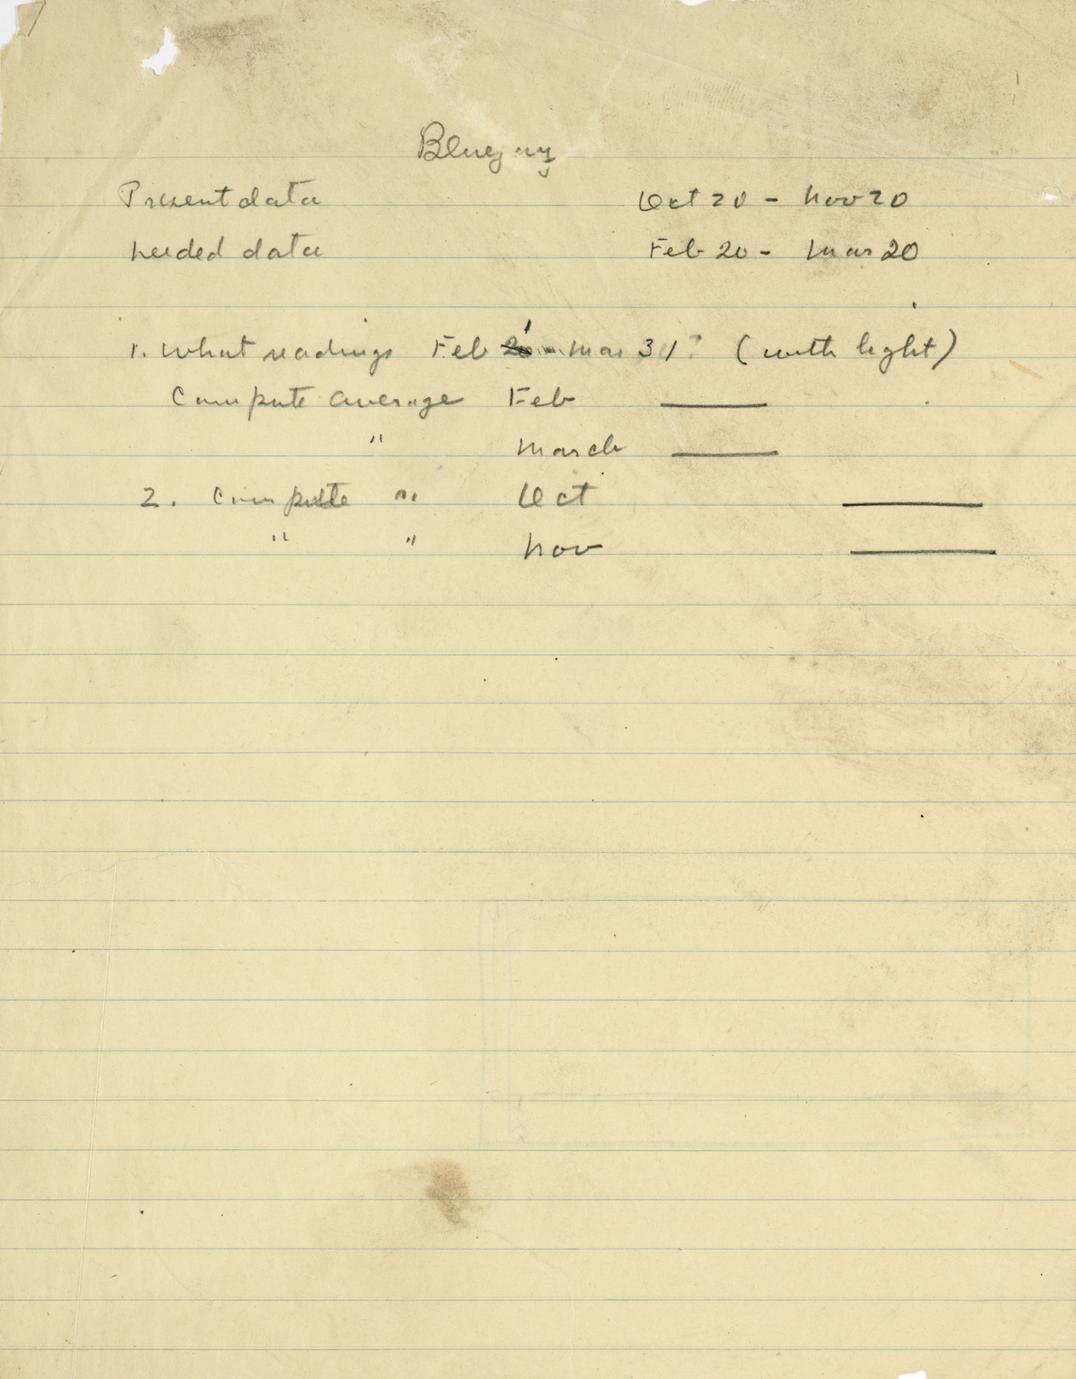 Bluejay
Present data Oct 20 - Nov 20
Needed data Feb 20 - Mar 20
1. What readings Feb 1 - Mar 31? (with light)
Compute average Feb ____
" March ____
2. Compute " Oct ____
" " Nov ____